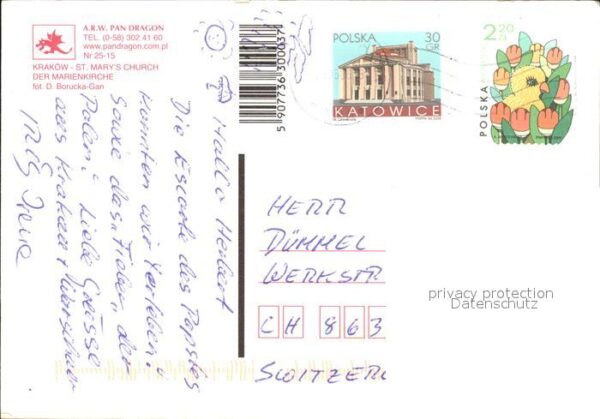 A.R.W. PAN DRAGON
TEL. (0-58) 302 41 60
www.pandragon.com.pl
Nr 25-15
KRAKÓW - ST. MARY'S CHURCH
DER MARIENKIRCHE
fot. D. Borucka-Gan
5 907736 300037
POLSKA 30 GR
KATOWICE
2,20 ZŁ
POLSKA
Hallo Herbert
Die Eskorte des Papstes
konnten wir erleben:
Sowie das Fieber der
Polen: Liebe Grüsse
aus Krakau + Warschau
HERR
DÜMMEL
WERKSTR
CH 863
SWITZERL
privacy protection
Datenschutz